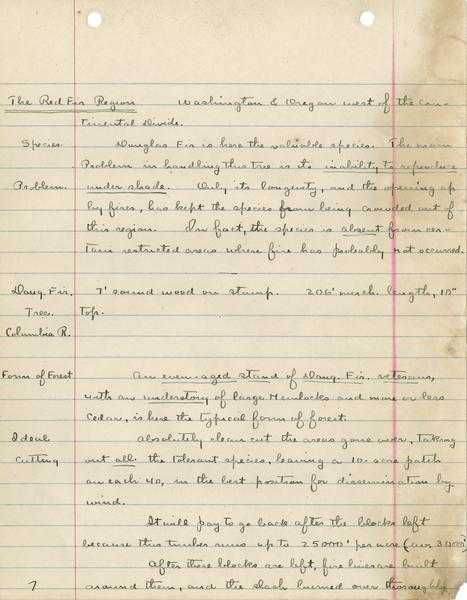 The Red Fir Region Washington & Oregon west of the con-
tinental Divide.
Species. Douglas Fir is here the valuable species. The main
Problem. Problem in handling this tree is its inability to reproduce
under shade. Only its longevity, and the opening up
by fires, has kept the species from being crowded out of
this region. In fact, the species is absent from cer-
tain restricted areas where fire has probably not occurred.
Doug. Fir. 7' sound wood on stump. 206' merch. length, 10"
Tree. top.
Columbia R.
Form of Forest An even-aged stand of Doug. Fir veterans,
with an understory of large Hemlocks and more or less
Cedar, is here the typical form of forest.
Ideal Absolutely clean cut the areas gone over, taking
Cutting out all the tolerant species, leaving a 10-acre patch
on each 40, in the best position for dissemination by
wind.
It will pay to go back after the blocks left
because this timber runs up to 25000' per acre (av.
After these blocks are left, fire lines are built
7 around them, and the slash burned over thoroughly